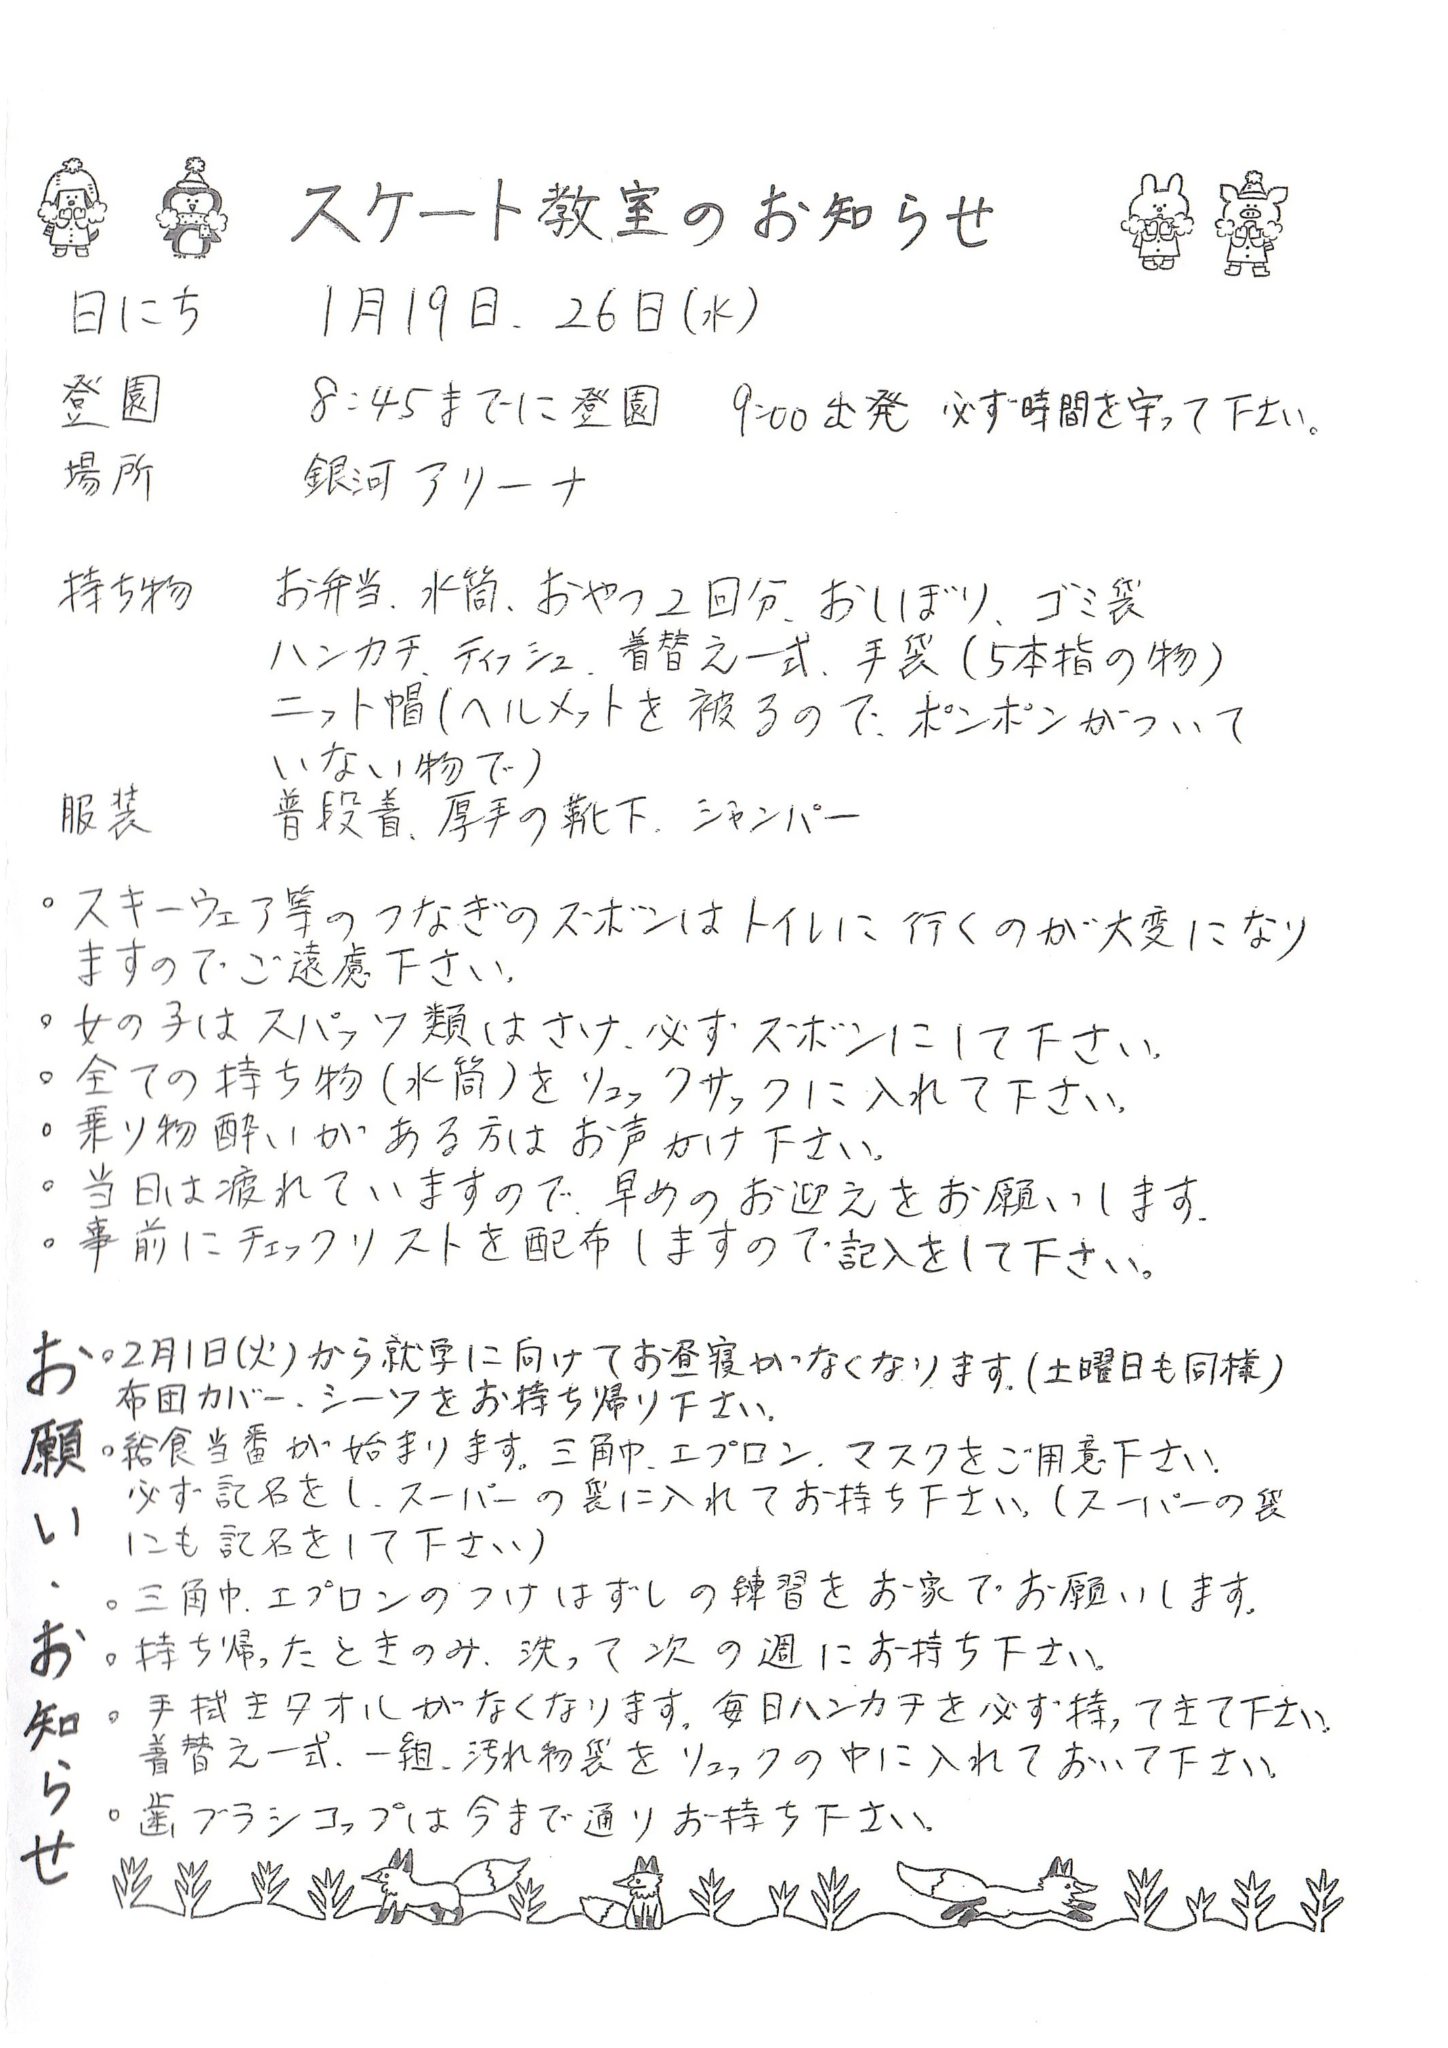 スケート教室のお知らせ
日にち 1月19日、26日(水)
登園 8:45までに登園 9:00出発 必ず時間を守って下さい。
場所 銀河アリーナ
持ち物 お弁当、水筒、おやつ2回分、おしぼり、ゴミ袋
ハンカチ、ティッシュ、着替え一式、手袋(5本指の物)
ニット帽(ヘルメットを被るので、ポンポンがついて
いない物で)
服装 普段着、厚手の靴下、ジャンパー
・スキーウェア等のつなぎのズボンはトイレに行くのが大変になり
ますのでご遠慮下さい。
・女の子はスパッツ類はさけ、必ずズボンにして下さい。
・全ての持ち物(水筒)をリュックサックに入れて下さい。
・乗り物酔いがある方はお声かけ下さい。
・当日は疲れていますので、早めのお迎えをお願いします。
・事前にチェックリストを配布しますので記入をして下さい。
お願い・お知らせ
・2月1日(火)から就学に向けてお昼寝がなくなります。(土曜日も同様)
布団カバー、シーツをお持ち帰り下さい。
・給食当番が始まります。三角巾、エプロン、マスクをご用意下さい。
必ず記名をし、スーパーの袋に入れてお持ち下さい。(スーパーの袋
にも記名をして下さい)
・三角巾、エプロンのつけはずしの練習をお家でお願いします。
・持ち帰ったときのみ、洗って次の週にお持ち下さい。
・手拭きタオルがなくなります。毎日ハンカチを必ず持ってきて下さい。
着替え一式、一組、汚れ物袋をリュックの中に入れておいて下さい。
・歯ブラシコップは今まで通りお持ち下さい。